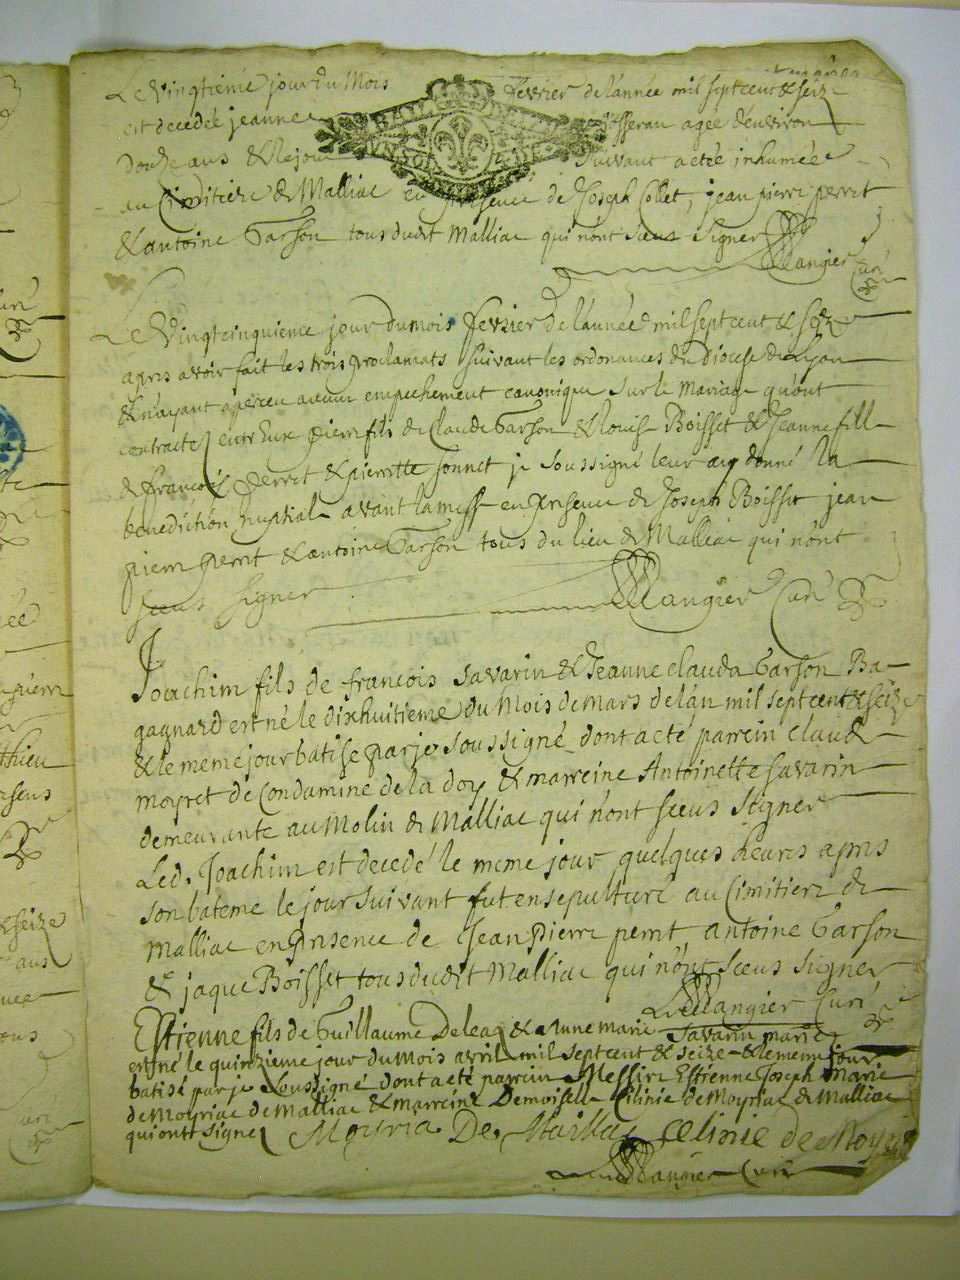 Le vingtieme jour du Mois fevrier de l'année mil sept cent & seize
est decedée jeanne agée d'environ
douze ans & le jour suivant a eté inhumée
au Cimitiere de Malliac en presence de Joseph Collet, jean pierre perret
& antoine Garson tous dudit Malliac qui n'ont sceus signer
Mangier Curé
Le Vingt cinquieme jour du mois fevrier de l'année mil sept cent & seize
apres avoir fait les trois proclamats suivant les ordonances du diocese de Lyon
& n'ayant aperceu aucun empechement canonique sur le mariage qu'ont
contracté entr Eux pierre fils de Claude Garson & Louise Boisset & Jeanne fille
de francois perret & pierrette sonnet je soussigné leur ay donné la
benediction nuptiale avant la messe en presence de Joseph Boisset jean
pierre perret & antoine Garson tous du lieu de Malliac qui n'ont
sceus signer
Mangier Curé
Joachim fils de francois Savarin & Jeanne clauda Garson Ba-
gagnard est né le dixhuitieme du Mois de Mars de l'an mil sept cent & seize
& le meme jour batisé par je soussigné dont a eté parrein claude
moyret de Condamine de la doy & marreine Antoinette savarin
demeurante au Molin de Malliac qui n'ont sceus signer
Led. Joachim est decedé le meme jour quelques heures apres
son bateme le jour suivant fut ensepulturé au Cimitiere de
Malliac en presence de Jean pierre perret, antoine Garson
& jaque Boisset tous dudit Malliac qui n'ont sceus signer
Mangier Curé
Estienne fils de Guillaume & Anne marie Savarin mariés
est né le quinzieme jour du mois avril mil sept cent & seize & le meme jour
batisé par je soussigné dont a eté parrein Messire Estienne Joseph Marie
de Moyriac de Malliac & marreine Demoiselle Celinie de Moyriac de Malliac
qui ont signé Moyria De Maillac Celinie de Moyria
Mangier Curé